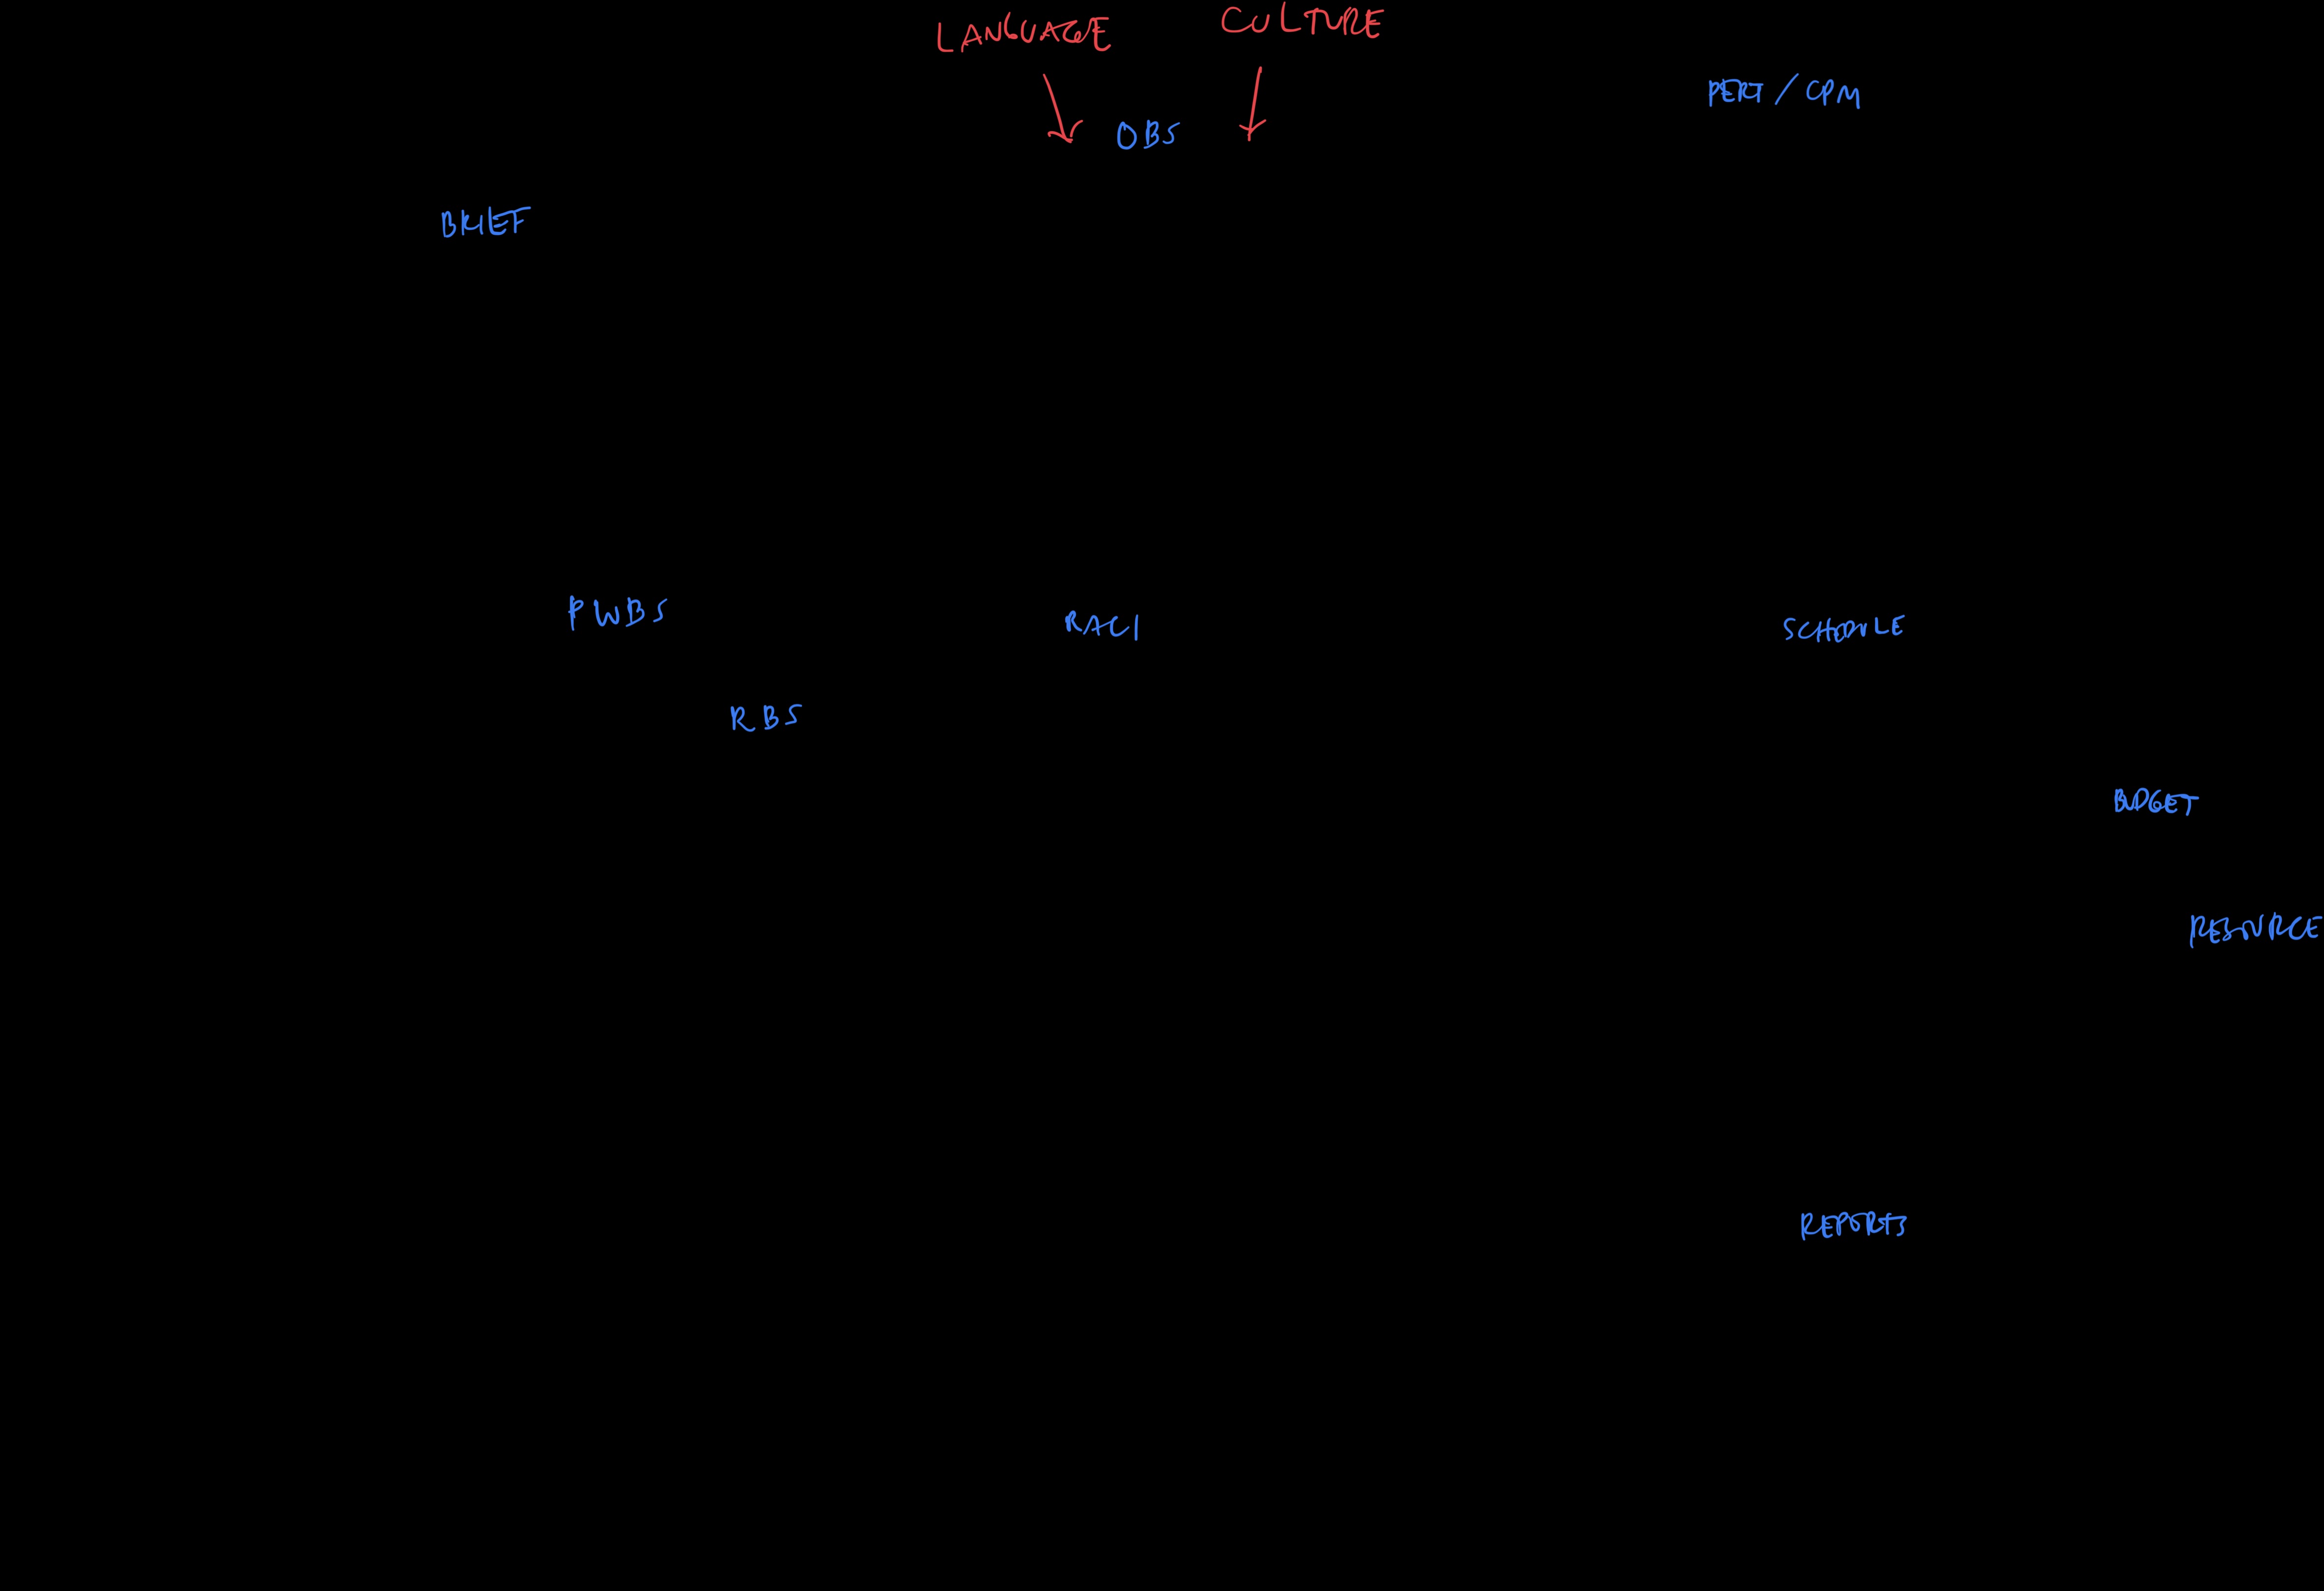 LANGUAGE CULTURE
PERT / CPM
OBS
BRIEF
PWBS
RACI
SCHEDULE
RBS
BUDGET
RESOURCE
REPORTS